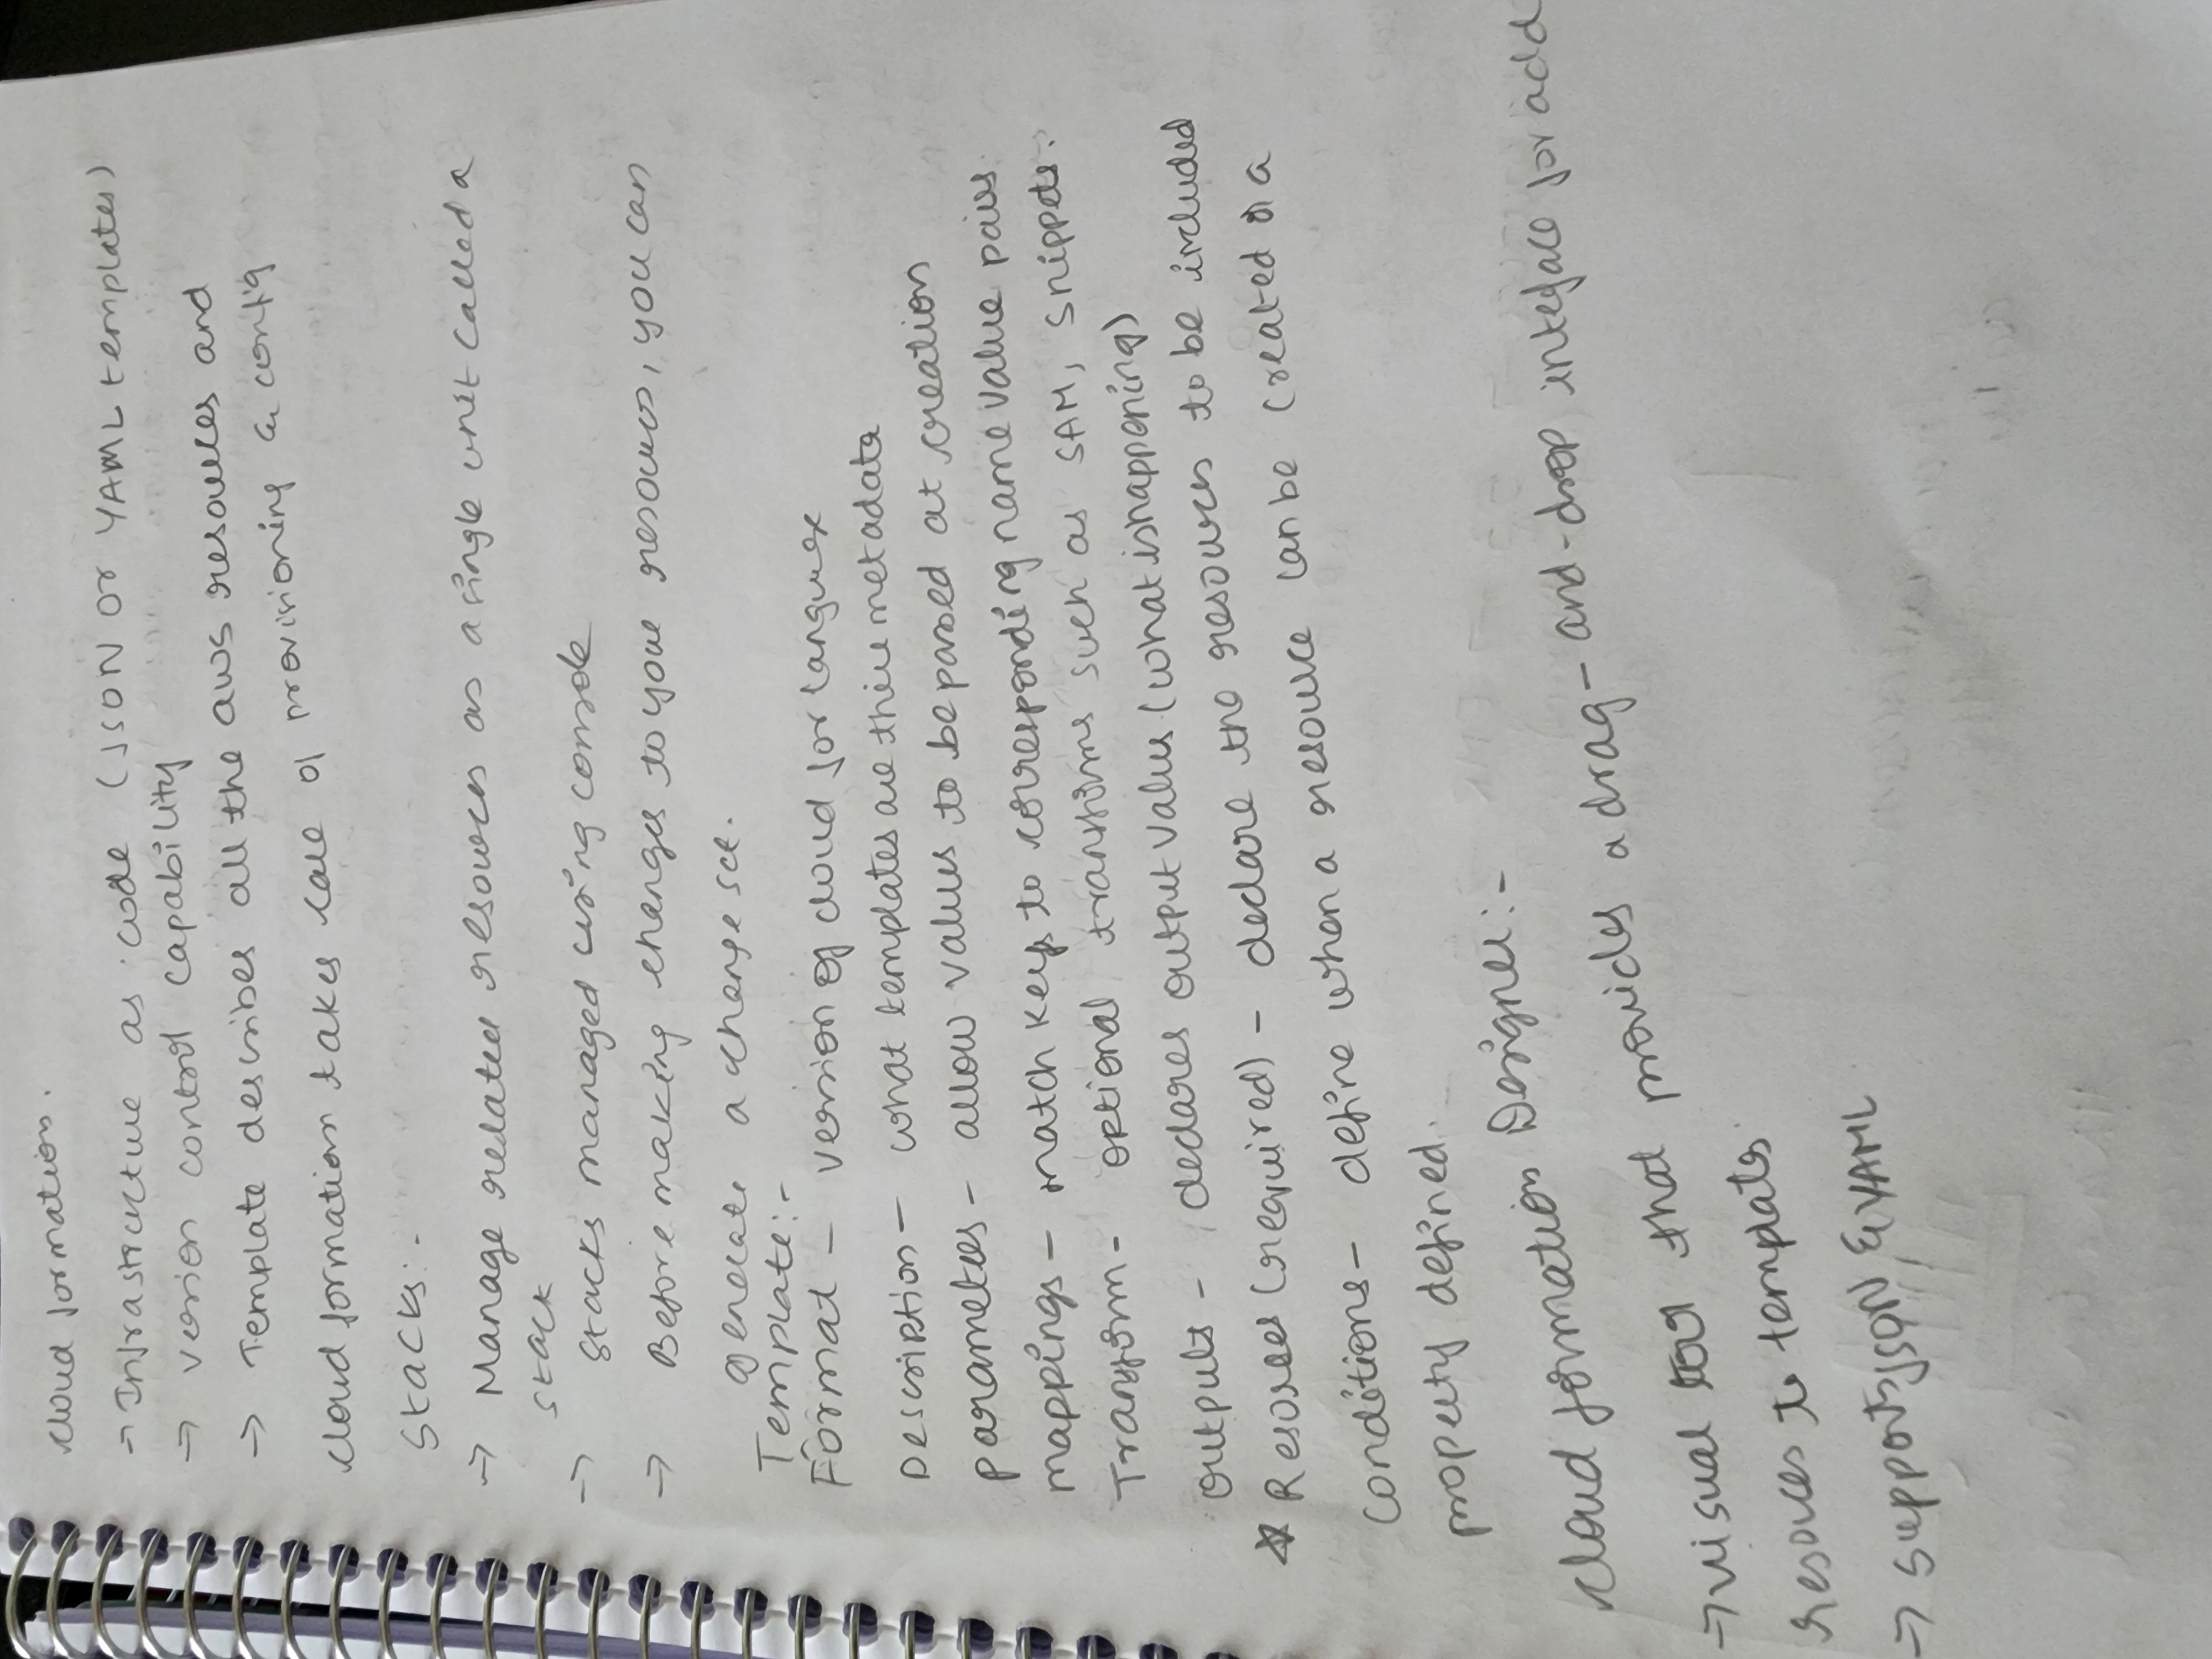 cloud formation.
→ Infrastructure as code (JSON or YAML templates)
→ version control capability
→ Template describes all the aws resources and
cloud formation takes care of provisioning & config
Stacks:-
→ Manage related resources as a single unit called a
stack
→ stacks managed using console
→ Before making changes to your resources, you can
generate a change set.
Template:-
Format - version of cloud for language
Description - what templates are there metadata
parameters - allow values to be passed at creation
mappings - match keys to corresponding name value pairs.
Transform - optional transforms such as SAM, snippets.
outputs - declares output values (what is happening)
☆ Resorces (required) - declare the resources to be included
Conditions - define when a resource can be created or a
property defined.
cloud formation Designer:-
→ visual tool that provides a drag-and-drop interface for add
resorces to templates.
→ supports JSON & YAML